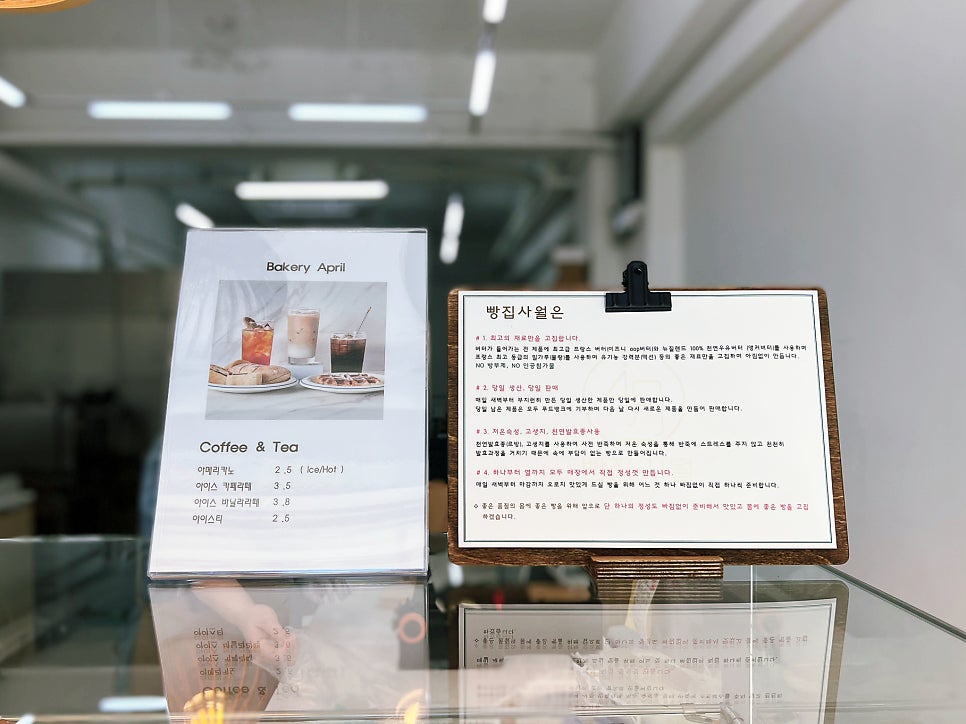 Bakery April
Coffee & Tea
아메리카노 2.5 ( Ice/Hot )
아이스 카페라떼 3.5
아이스 바닐라라떼 3.8
아이스티 2.5
빵집사월은
# 1. 최고의 재료만을 고집합니다.
버터가 들어가는 전 제품에 최고급 프랑스 버터(이즈니 aop버터)와 뉴질랜드 100% 천연우유버터 (앵커버터)를 사용하며
프랑스 최고 등급의 밀가루(물랑)를 사용하며 유기농 강력분(맥선) 등의 좋은 재료만을 고집하며 아낌없이 만듭니다.
NO 방부제, NO 인공첨가물
# 2. 당일 생산, 당일 판매
매일 새벽부터 부지런히 만든 당일 생산한 제품만 당일에 판매합니다.
당일 남은 제품은 모두 푸드뱅크에 기부하며 다음 날 다시 새로운 제품을 만들어 판매합니다.
# 3. 저온숙성, 고생지, 천연발효종사용
천연발효종(르방), 고생지를 사용하여 사전 반죽하며 저온 숙성을 통해 반죽에 스트레스를 주지 않고 천천히
발효과정을 거치기 때문에 속에 부담이 없는 빵으로 만들어집니다.
# 4. 하나부터 열까지 모두 매장에서 직접 정성껏 만듭니다.
매일 새벽부터 마감까지 오로지 맛있게 드실 빵을 위해 어느 것 하나 빠짐없이 직접 하나씩 준비합니다.
◇ 좋은 품질의 몸에 좋은 빵을 위해 앞으로 단 하나의 정성도 빠짐없이 준비해서 맛있고 몸에 좋은 빵을 고집
하겠습니다.